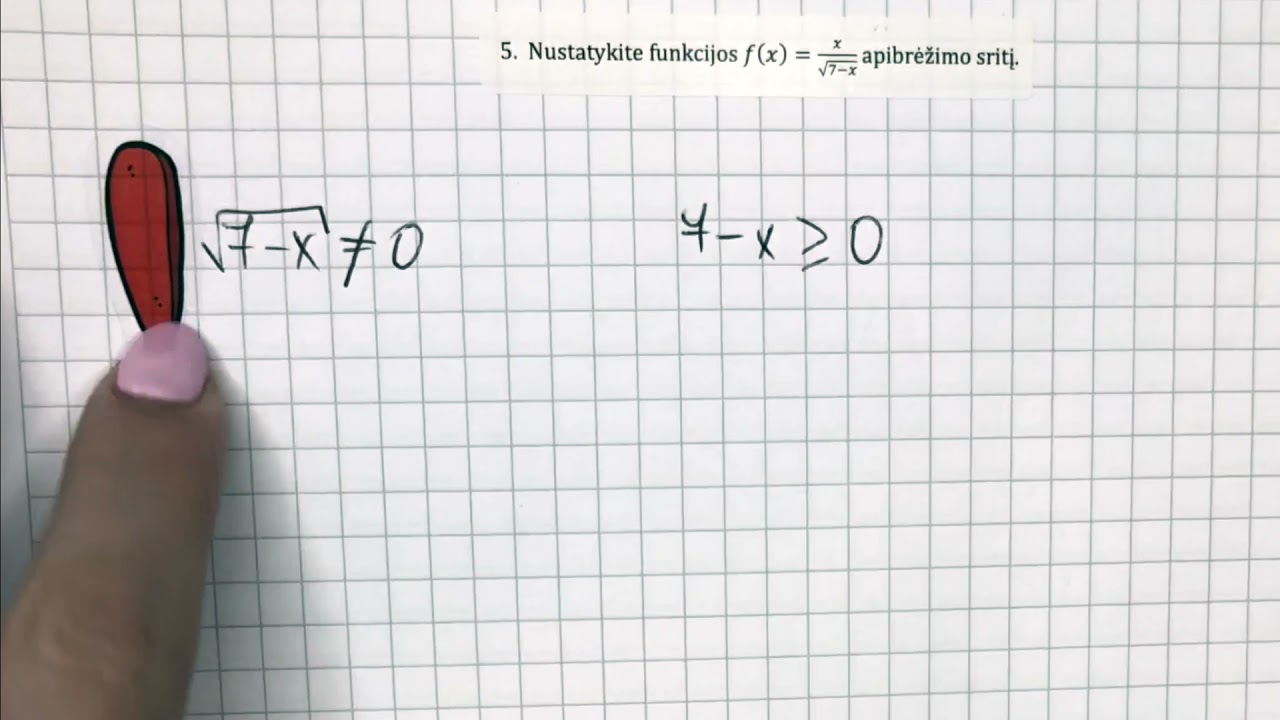 5. Nustatykite funkcijos f(x) = x/√(7−x) apibrėžimo sritį.
√(7−x) ≠ 0
7−x ≥ 0